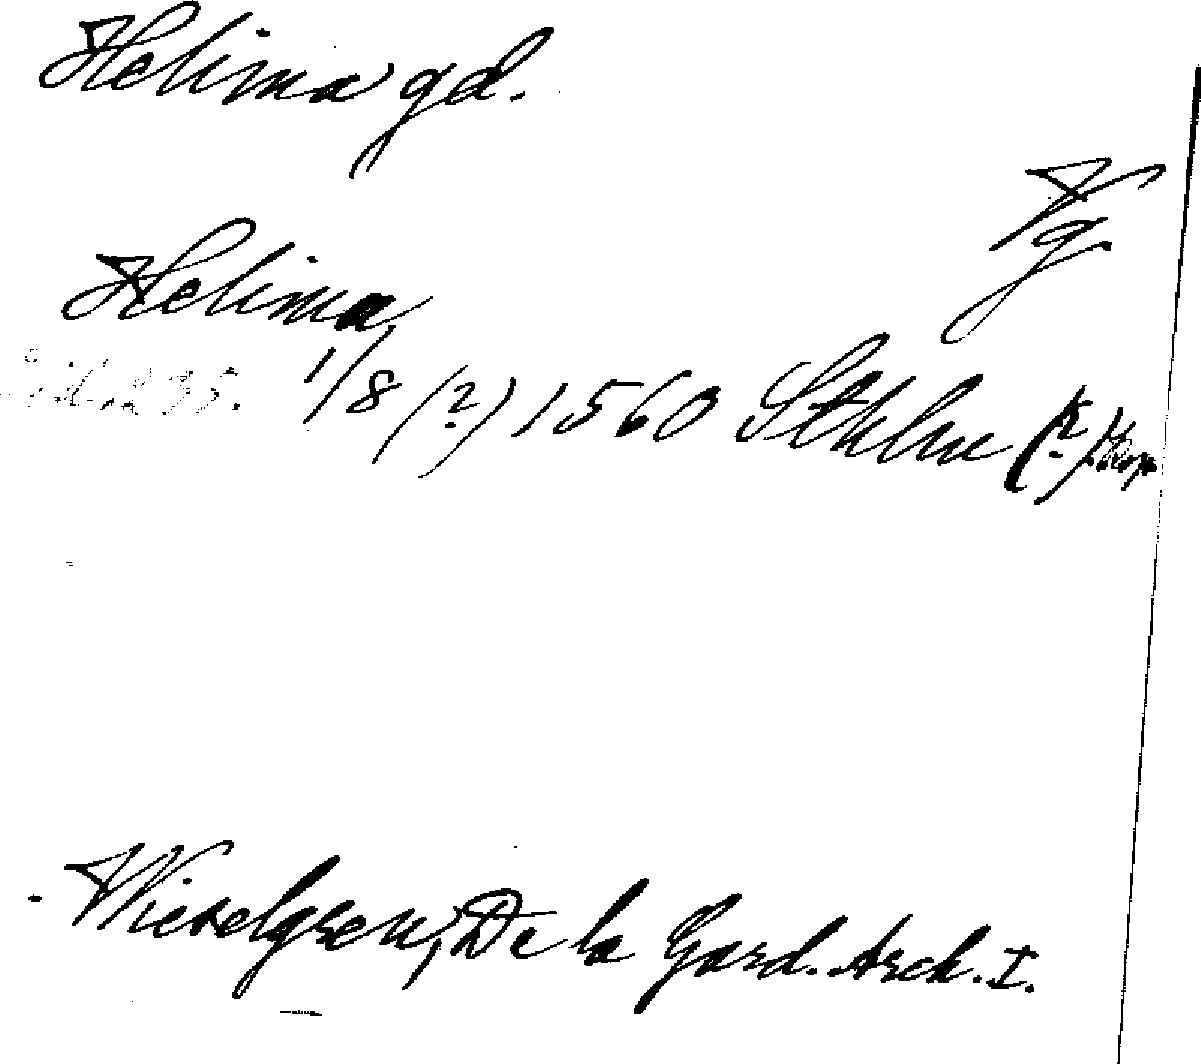 Helima gd.
Vg.
Helima,
235. 1/8 (?) 1560 Sthlm (?)
Wieselgren, De la Gard. Arch. I.